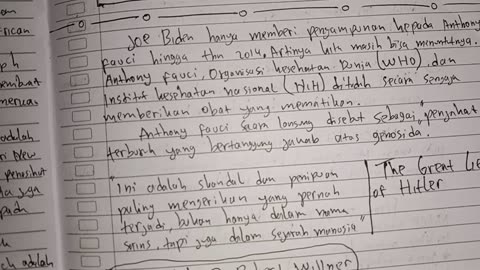 Joe Biden hanya memberi pengampunan kepada Anthony
fauci hingga thn 2014, Artinya kita masih bisa menuntutnya.
Anthony fauci, Organisasi kesehatan Dunia (WHO), dan
Institut kesehatan nasional (NIH) dituduh secara sengaja
memberikan obat yang mematikan.
Anthony fauci secara langsung disebut sebagai "penjahat
terburuk yang bertanggung jawab atas genosida.
"Ini adalah skandal dan penipuan
paling mengerikan yang pernah
terjadi, bukan hanya dalam nama
sains, tapi juga dalam sejarah manusia"
The Great Lie
of Hitler
rican
adalah
New
penasihat
juga
adalah
Willner